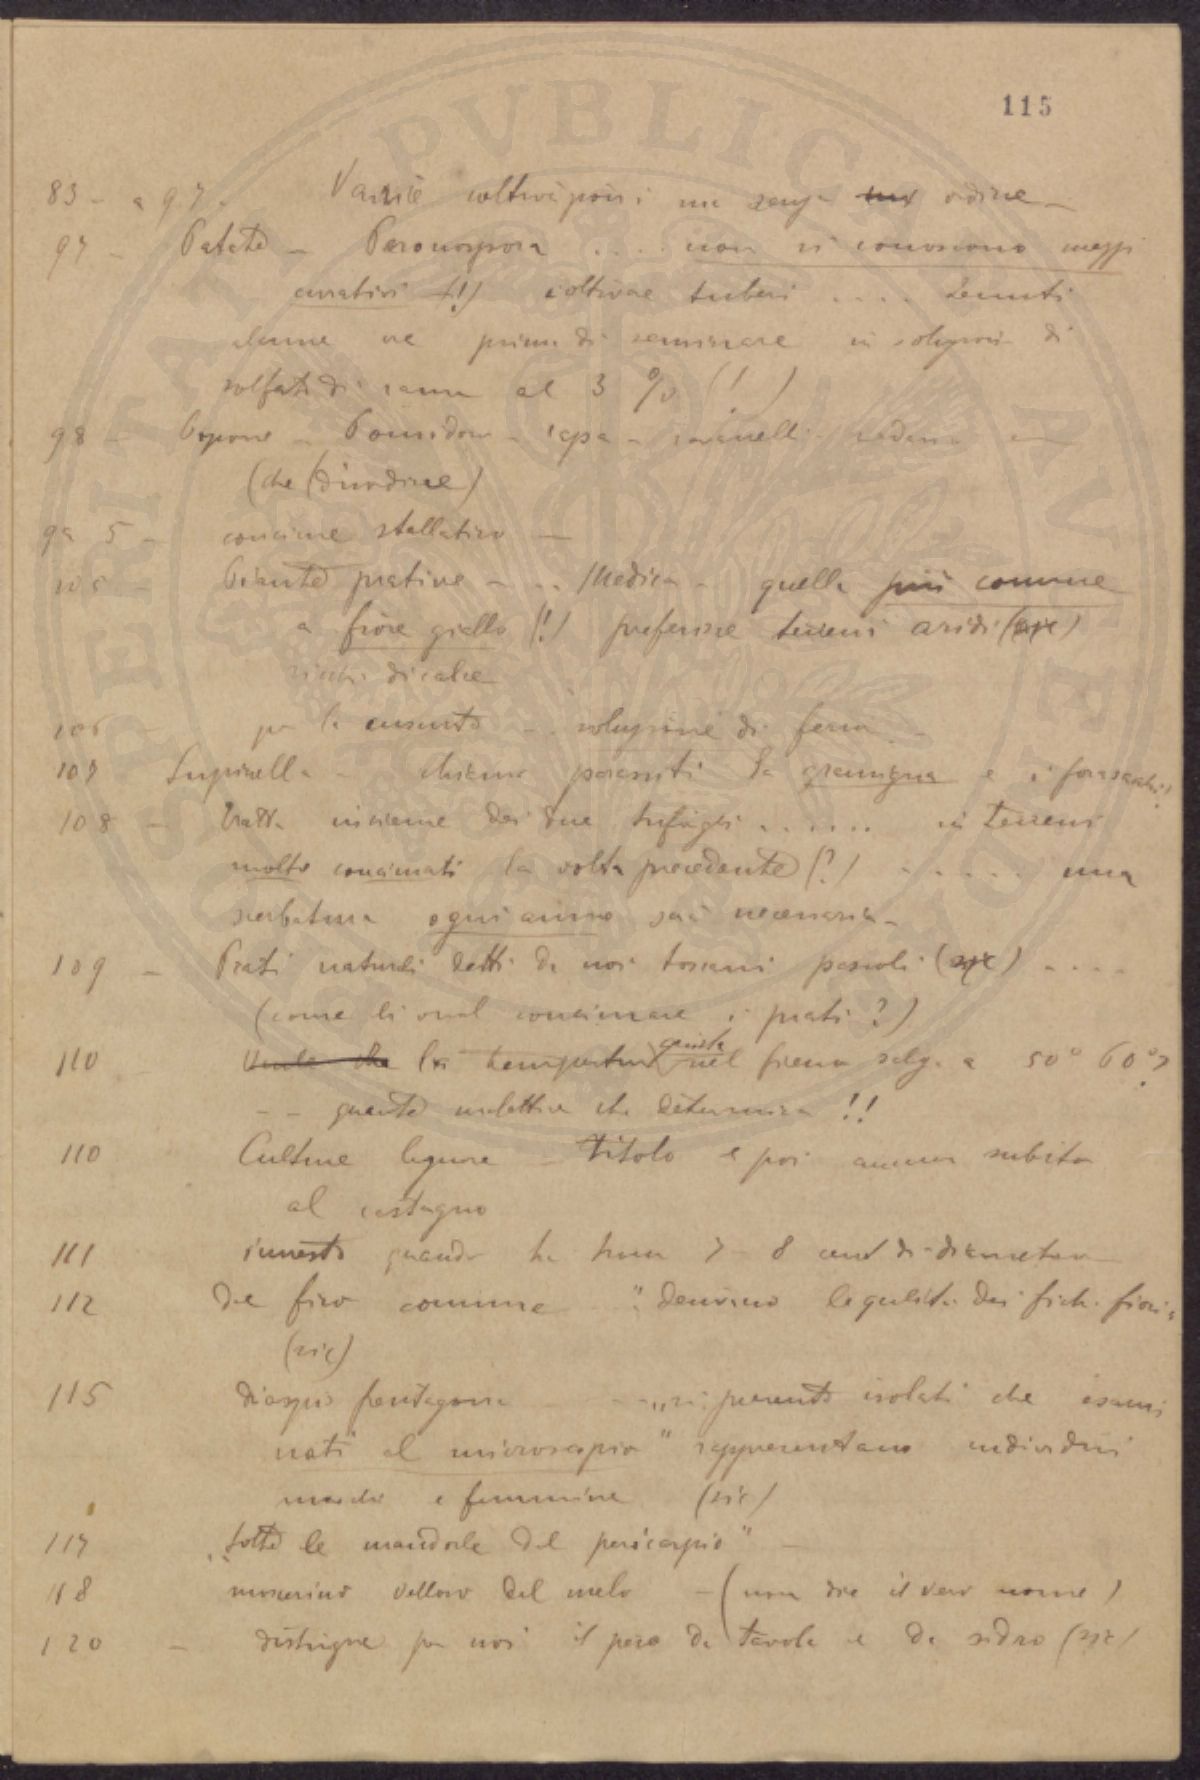 115
83 - a 97. Varie coltivazioni ma senza ordine -
97 - Patate - Peronospora .... non si conoscono mezzi
curativi (!) coltivare tuberi .... tenuti
prima di seminare in soluzioni di
solfato di rame al 3 % (!)
98 - Popone - Pomidoro - rapa - ravanelli - sedano
(che disordine)
99 5 - concime stallatico -
105 - Piante prative - .. Medica - quella più comune
a fiore giallo (!) preferisce terreni aridi (sic)
ricchi di calce
106 - per la cuscuta .. soluzione di ferro -
107 Lupinella - chiama parassiti la gramigna e i forasacchi!
108 - Tratta insieme dei due trifogli ...... in terreni
molto concimati la volta precedente (?) ...... una
serbatura ogni anno sarà necessaria -
109 - Prati naturali detti da noi toscani pascoli (sic) ....
(come li vuol concimare i prati?)
110 la temperatura giusta nel fieno salga a 50° 60°?
-- quante malattie che determina !!
110 Culture legnose - titolo e poi ancora subito
al castagno
111 innesto quando ha 7 8 cent di diametro
112 Del fico comune " derivano le qualità dei fichi fiori "
(sic)
115 diaspis pentagona - - " si presenta isolati che esami
nati al microscopio " rappresentano individui
maschi e femmine (sic)
117 " sotto le mandorle del pericarpio " -
118 moscerino velloso del melo - (non dice il vero nome)
120 - distingue per noi il pero da tavola e da sidro (sic)